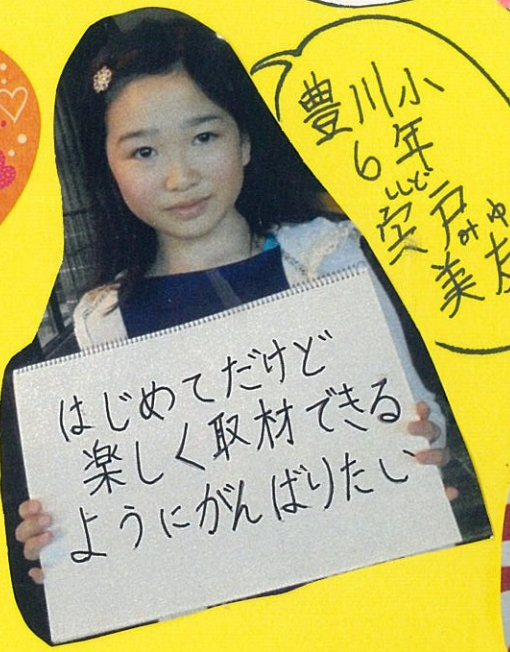 豊川小
6年
ししど みゆ
宍戸美友
はじめてだけど
楽しく取材できる
ようにがんばりたい